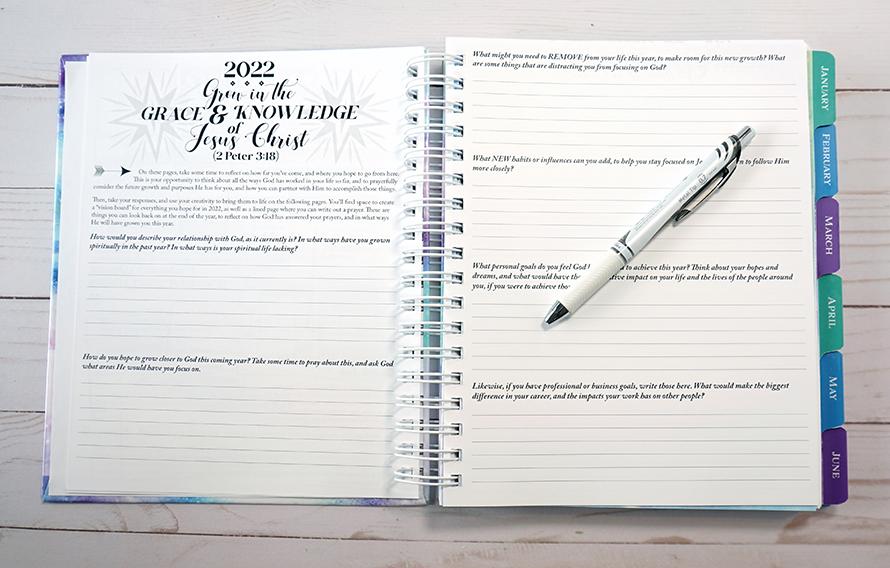 2022
Grow in the
GRACE & KNOWLEDGE
of
Jesus Christ
(2 Peter 3:18)
On these pages, take some time to reflect on how far you've come, and where you hope to go from here.
This is your opportunity to think about all the ways God has worked in your life so far, and to prayerfully
consider the future growth and purposes He has for you, and how you can partner with Him to accomplish those things.
Then, take your responses, and use your creativity to bring them to life on the following pages. You'll find space to create
a "vision board" for everything you hope for in 2022, as well as a lined page where you can write out a prayer. These are
things you can look back on at the end of the year, to reflect on how God has answered your prayers, and in what ways
He will have grown you this year.
How would you describe your relationship with God, as it currently is? In what ways have you grown
spiritually in the past year? In what ways is your spiritual life lacking?
How do you hope to grow closer to God this coming year? Take some time to pray about this, and ask God
what areas He would have you focus on.
What might you need to REMOVE from your life this year, to make room for this new growth? What
are some things that are distracting you from focusing on God?
What NEW habits or influences can you add, to help you stay focused on to follow Him
more closely?
What personal goals do you feel to achieve this year? Think about your hopes and
dreams, and what would have impact on your life and the lives of the people around
you, if you were to achieve
Likewise, if you have professional or business goals, write those here. What would make the biggest
difference in your career, and the impacts your work has on other people?
JANUARY
FEBRUARY
MARCH
APRIL
MAY
JUNE